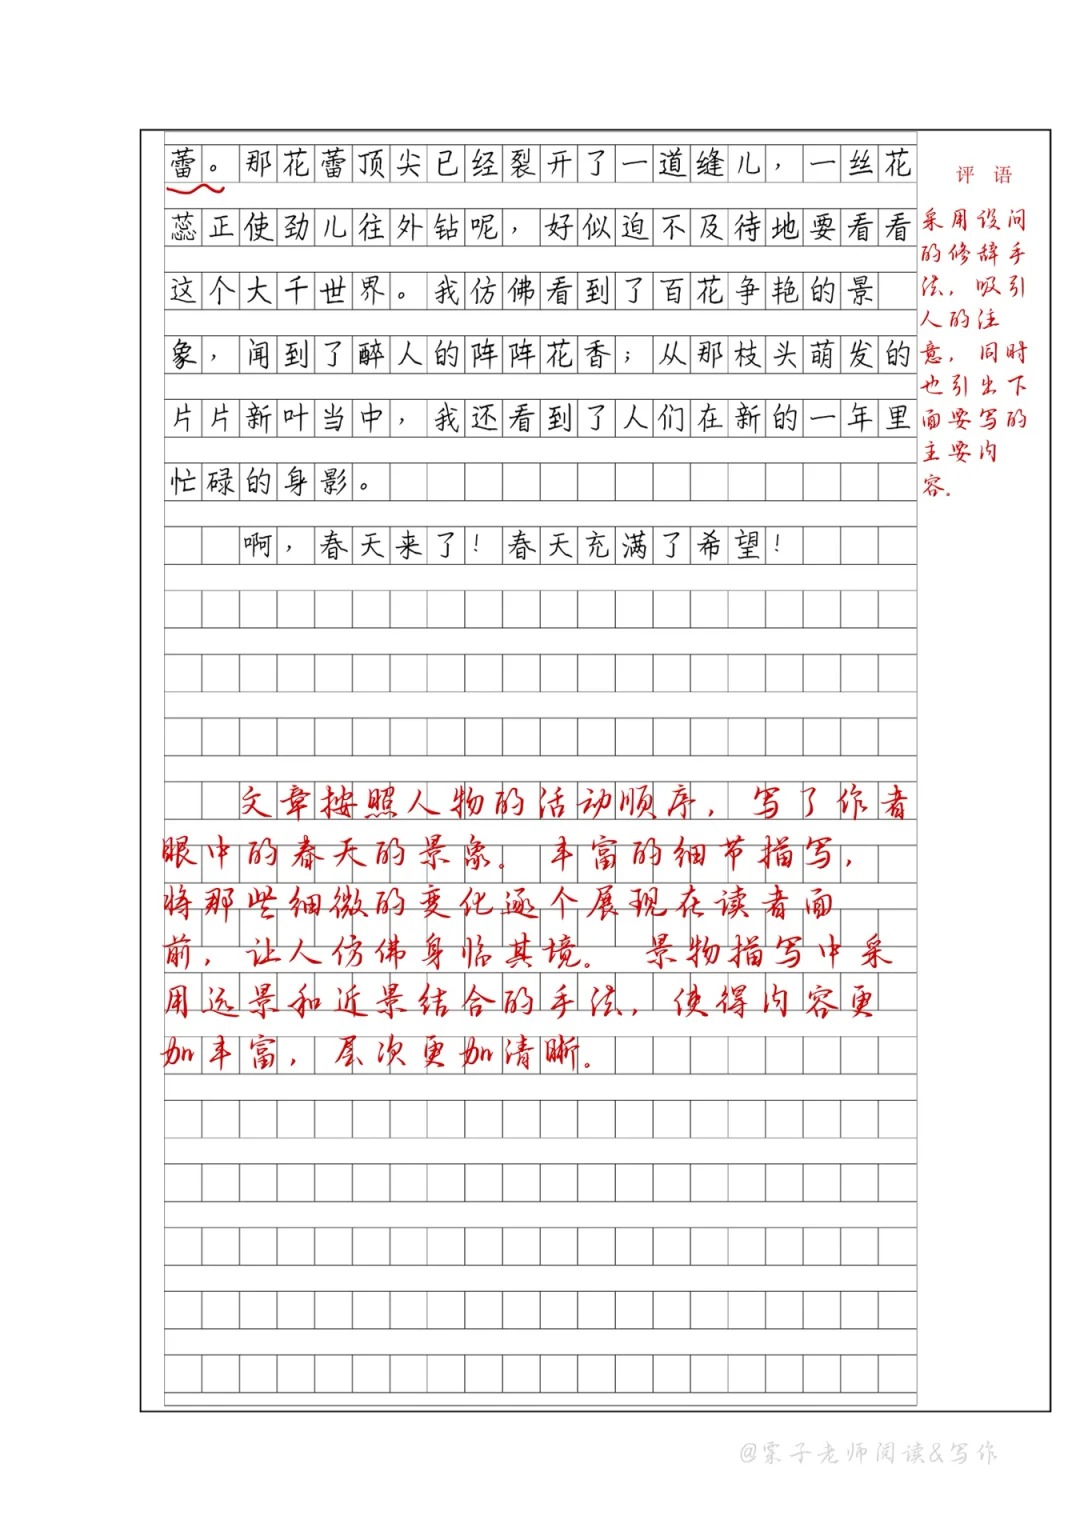 蕾。那花蕾顶尖已经裂开了一道缝儿，一丝花
蕊正使劲儿往外钻呢，好似迫不及待地要看看
这个大千世界。我仿佛看到了百花争艳的景
象，闻到了醉人的阵阵花香；从那枝头萌发的
片片新叶当中，我还看到了人们在新的一年里
忙碌的身影。
啊，春天来了！春天充满了希望！
评语
采用设问
的修辞手
法，吸引
人的注
意，同时
也引出下
面要写的
主要内
容。
文章按照人物的活动顺序，写了作者
眼中的春天的景象。丰富的细节描写，
将那些细微的变化逐个展现在读者面
前，让人仿佛身临其境。景物描写中采
用远景和近景结合的手法，使得内容更
加丰富，层次更加清晰。
@栗子老师阅读&写作